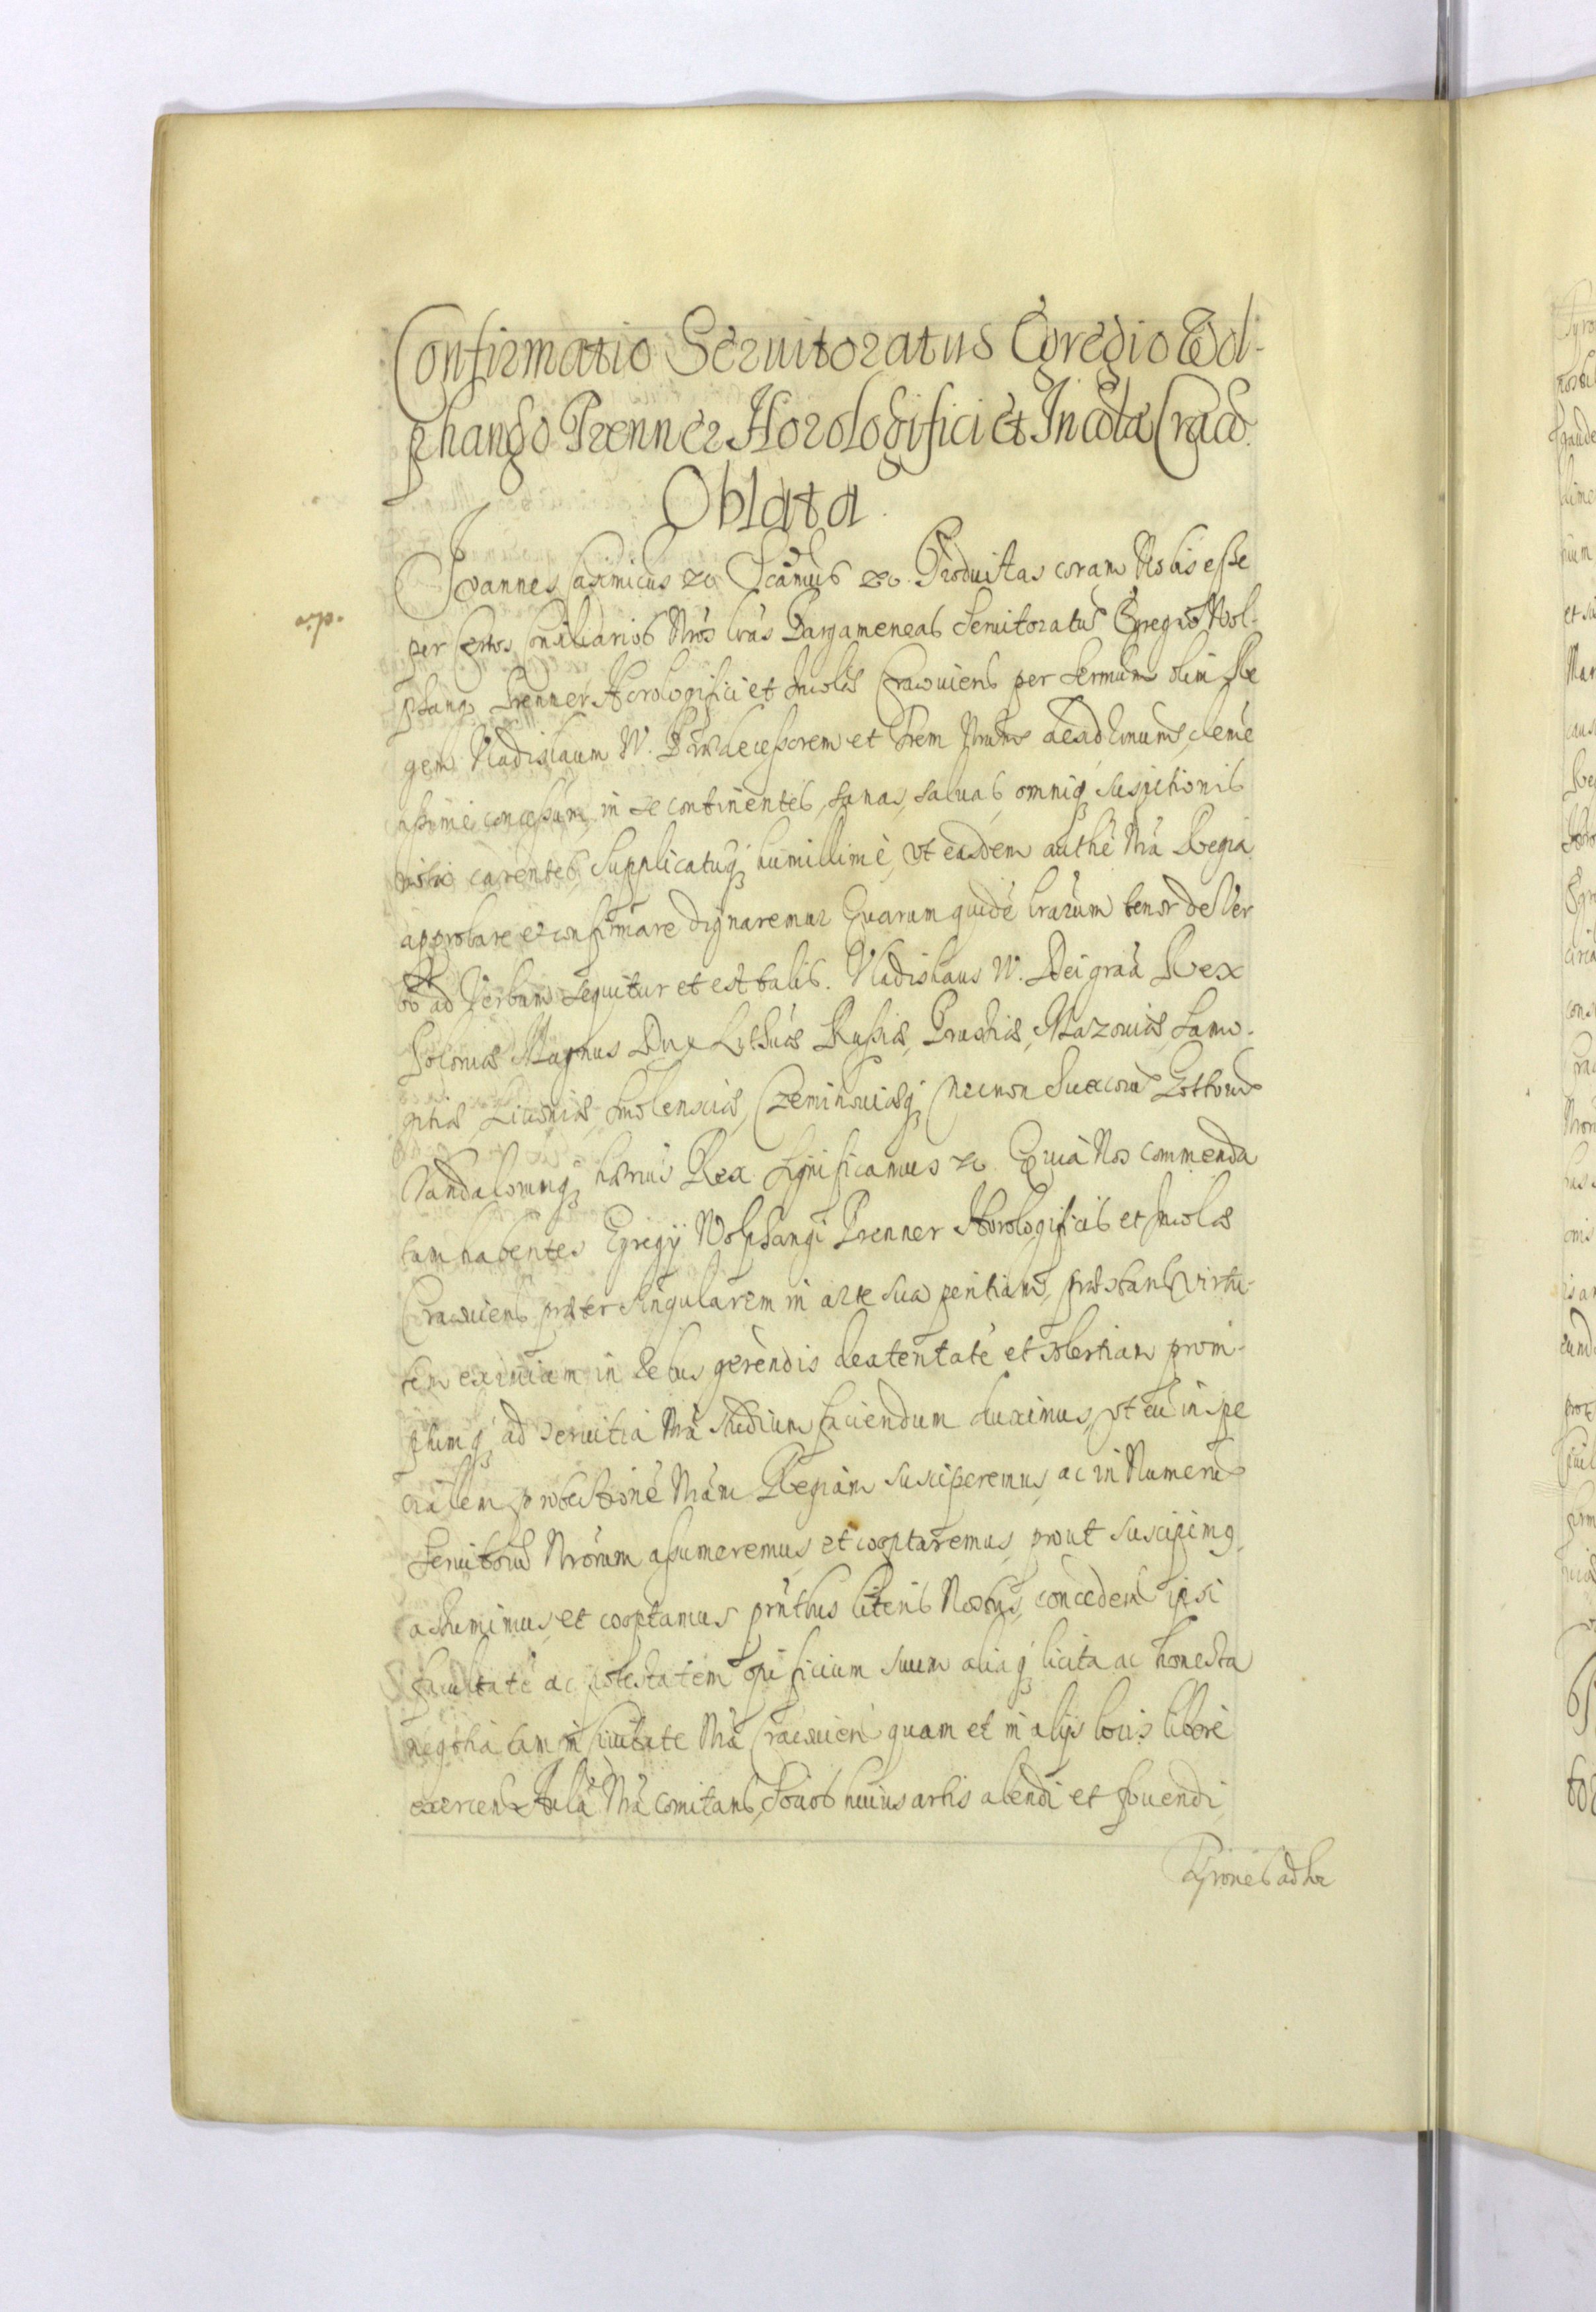 Confirmatio Seruitoratus Egregio Wol-
phango Prenner Horologifici et Incolæ Craco.
Oblata.
Joannes Casimirus &c. Sĉamus &c. Produitas coram Nobis esse
a.p.
per Certos Consiliarios Nros lras Pargameneas Seruitoratus Egregio Wol-
phango Prenner Horologifici et Incolæ Cracouiens per Sermum olim Re
gem Vladislaum IV. Prædecessorem et frem Nrum desid clemē
ssime concessum in se continentes, sanas, saluas, omniq, suspitionis
nota carentes, Supplicatuq, humillimè, vt easdem authē Nrā Regia
approbare et confirmare dignaremur Quarum quidē lrarum tenor de Ver
bo ad Verbum sequitur et est talis. Vladislaus IV. Dei gratā Rex
Poloniæ Magnus Dux Lithuæ Russiæ, Prussiæ, Mazouiæ, Samo-
gitiæ, Liuoniæ, Smolensciæ, Czernihouiæq, necnon Suecorū Gottorū
Vandalorumq, hærius Rex Significamus &c. Quia Nos commenda
tam habentes Egregij Wolphangi Prenner Horologificis et Incolæ
Cracouiens præter singularem in arte sua peritiam, præstans virtu-
tem eximiam in rebus gerendis dexteritatē et solertiam prom-
ptumq, ad seruitia Nrā studium faciendum duximus, vt eū in spe
cialem protectionē Nram Regiam susciperemus, ac in Numerū
Seruitorū Nrorum assumeremus, et cooptaremus, prout suscipimq,
assumimus, et cooptamus prntbus literis Nostris, concedens ipsi
facultatē ac potestatem opificium suum aliaq, licita ac honesta
negotia tam in Ciuitate Nrā Cracouien quam et in alijs locis liberè
exercen Aulā Nrā comitans, Socios huius artis alendi et fouendi,
Tyrones ad hæ